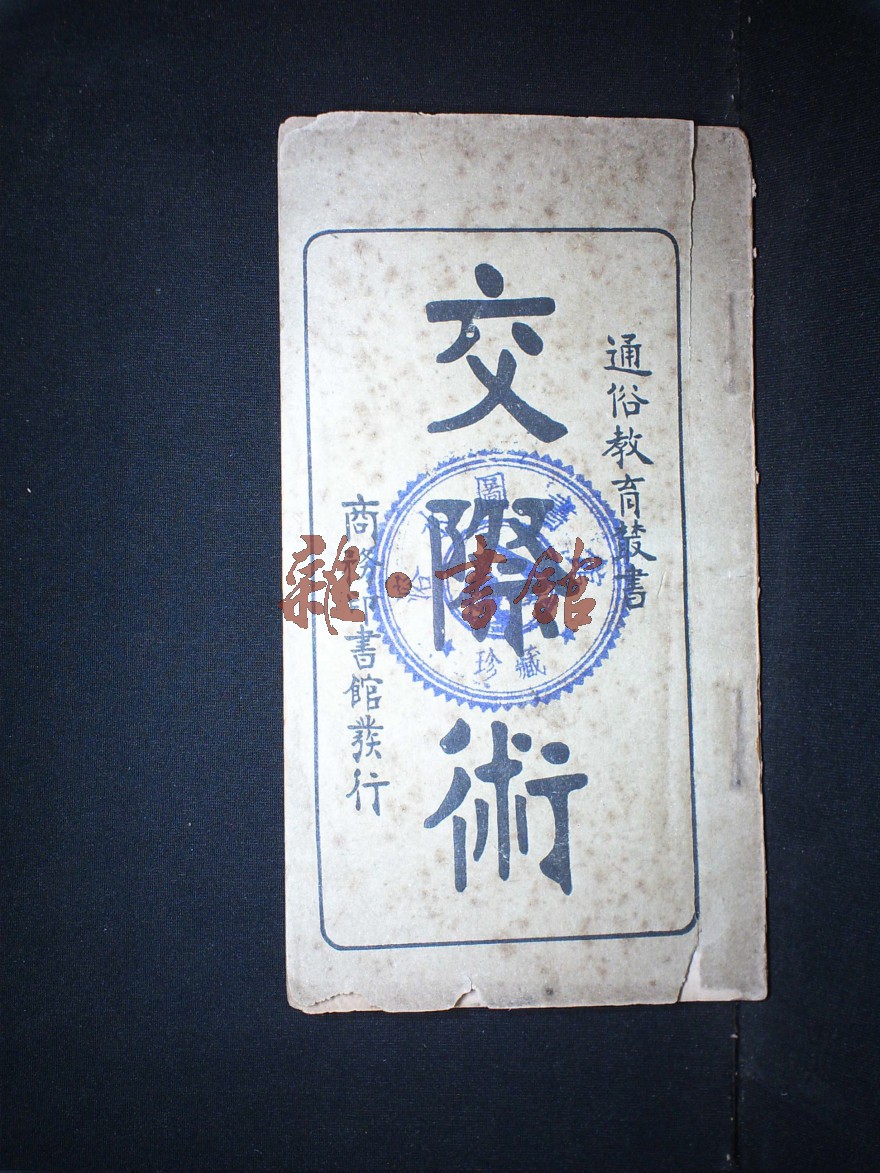 通俗教育叢書
交際術
商務印書館發行
圖書
珍藏
雜·書館